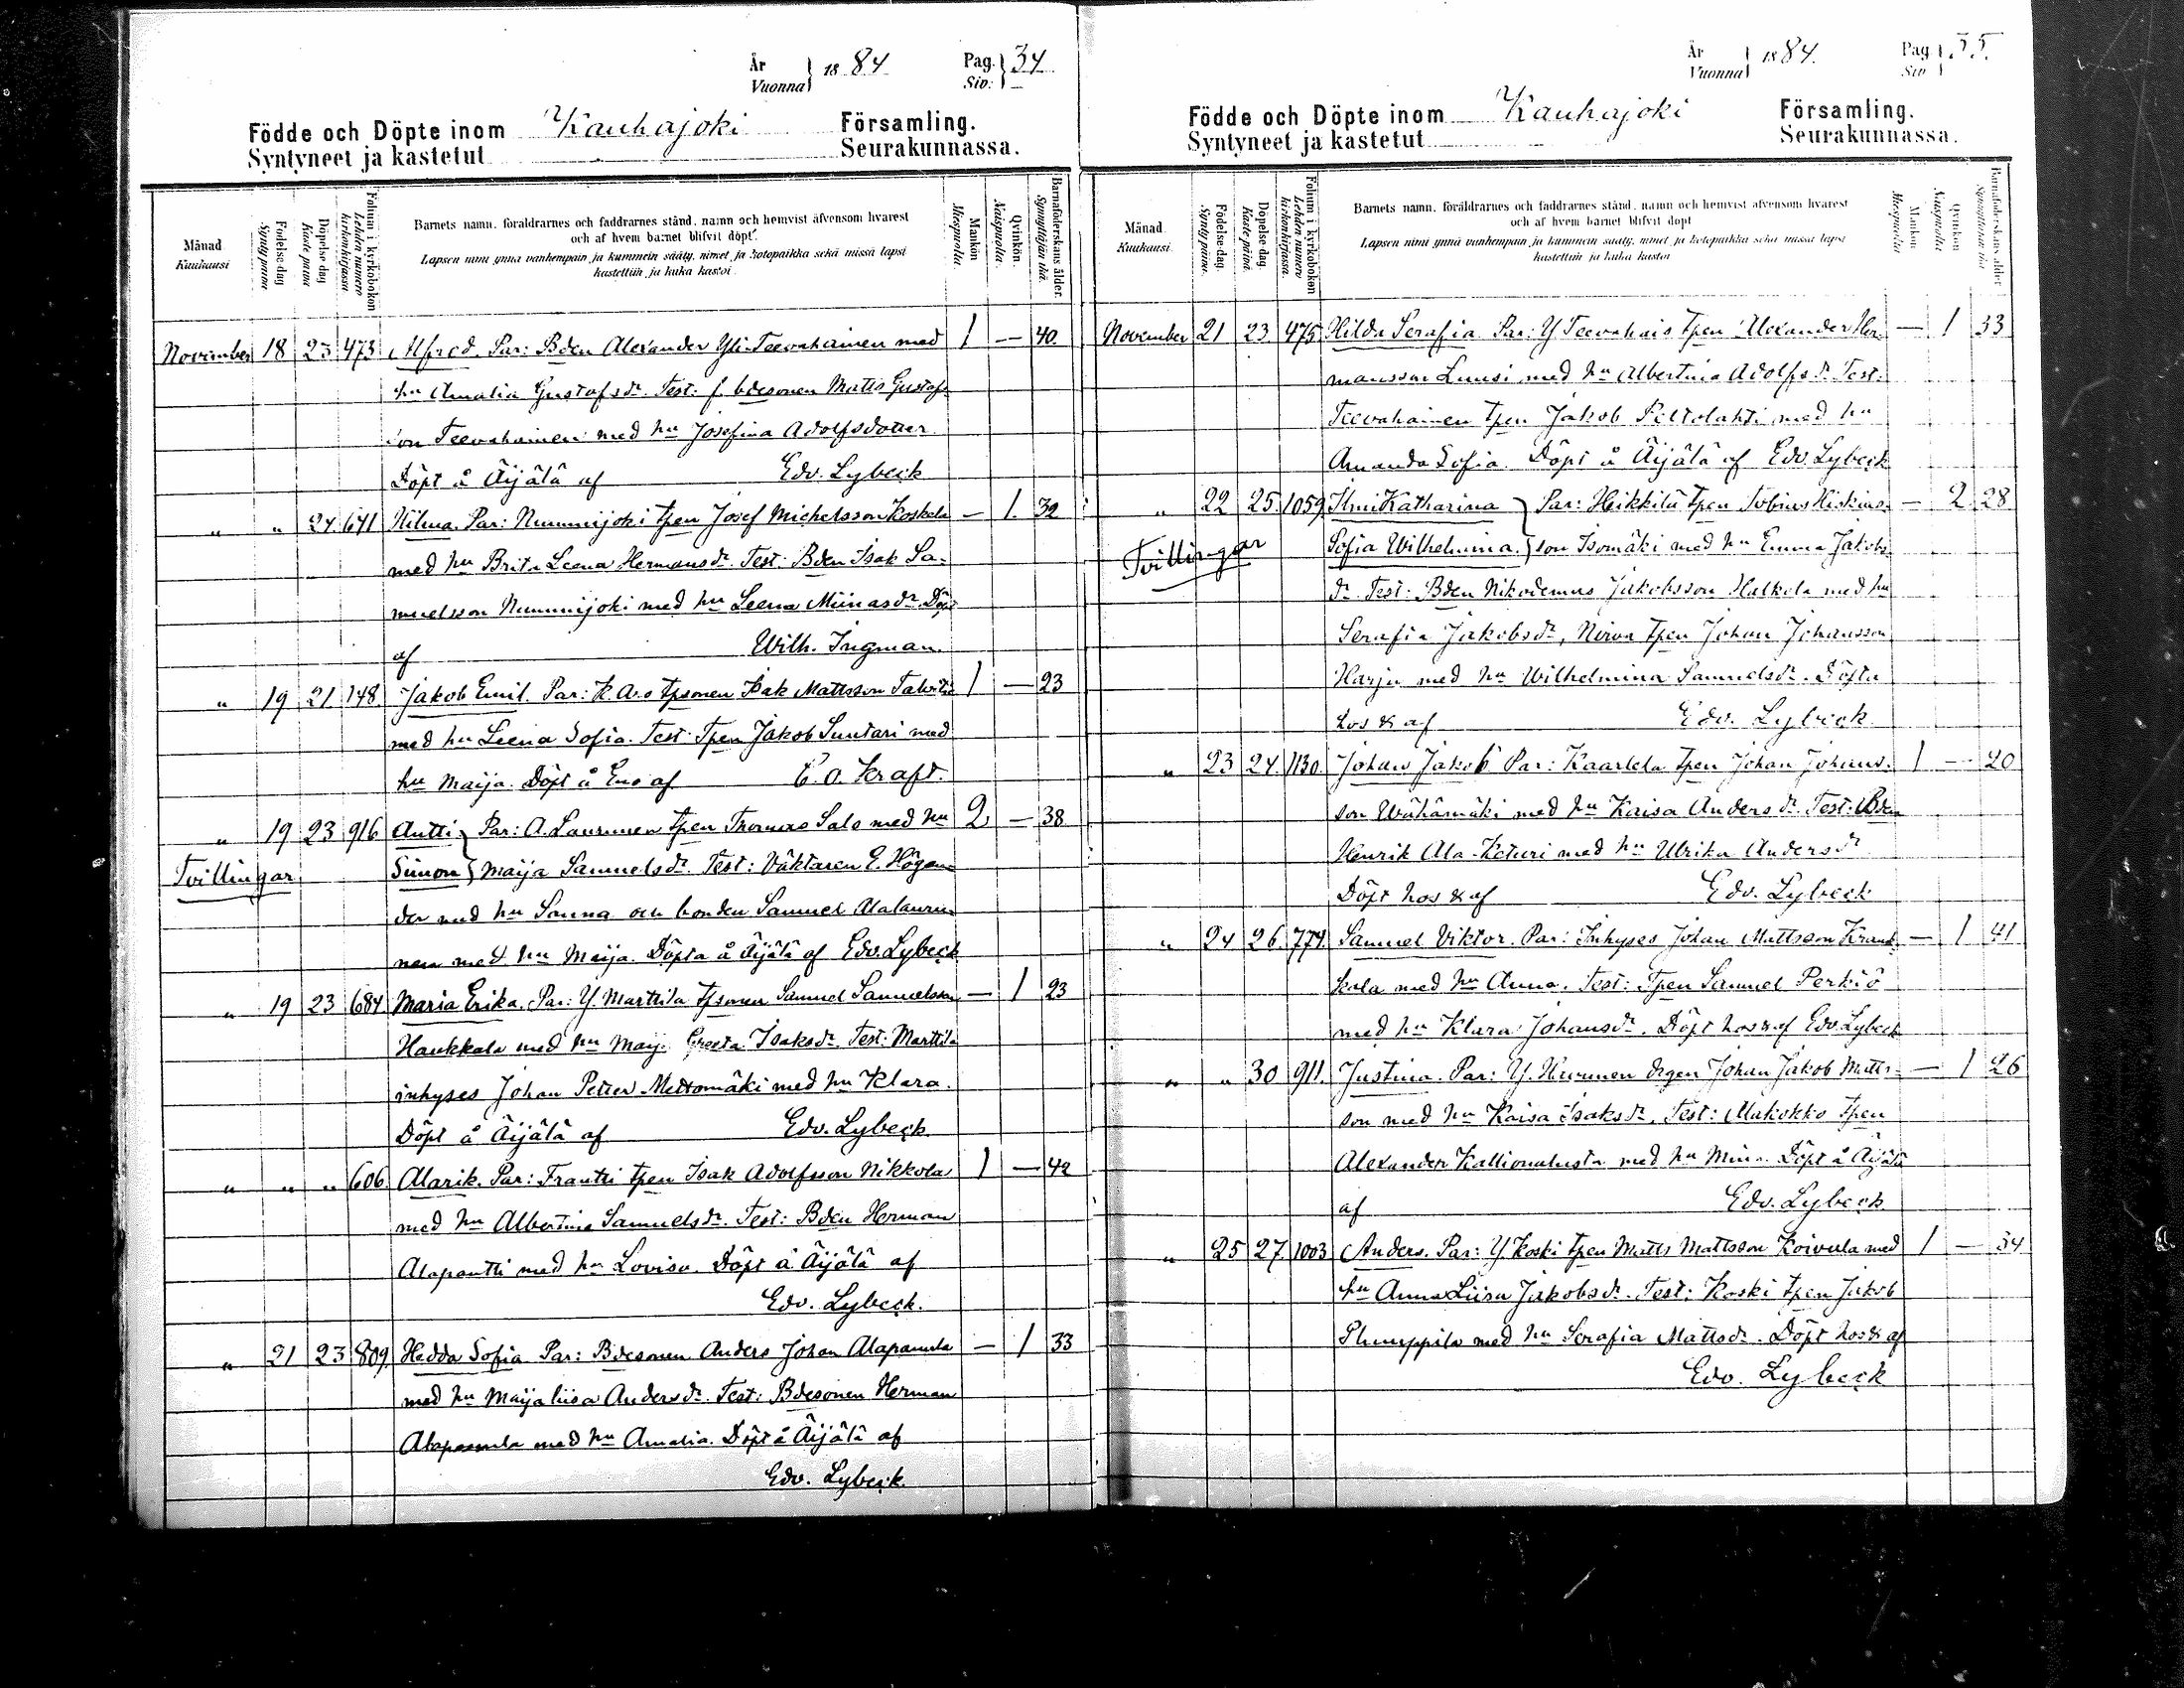 År
Vuonna 1884
Pag.
Siv: 34
Födde och Döpte inom Kauhajoki Församling.
Syntyneet ja kastetut Seurakunnassa.
Månad
Kuukausi
Födelse-dag
Synty päivä
Döpelse-dag
Kaste päivä
Folium i kyrkoboken
Lehden numero kirkonkirjassa
Barnets namn, föräldrarnes och faddrarnes stånd, namn och hemvist äfvensom hvarest
och af hvem barnet blifvit döpt.
Lapsen nimi ynnä vanhempain ja kummein sääty, nimet ja kotopaikka sekä missä lapsi
kastettiin ja kuka kastoi
Mankön
Miespuolia.
Qvinkön.
Naispuolia.
Barnaföderskans ålder.
Synnyttäjän ikä.
November 18 23 473 Alfred. Par: Bden Alexander Yli-Teevahainen med 1 — 40
hu Amalia Gustafsdr. Test: f. bdesonen Matts Gustafs
son Teevahainen med hu Josefina Adolfsdotter
Döpt å Äijälä af Edv. Lybeck
" " 24 641 Hilma. Par: Nummijoki tpen Josef Michelsson Koskela — 1. 32
med hu Brita Leena Hermansdr. Test: Bden Isak Sa-
muelsson Nummijoki med hu Leena Miinasdr. Döpt
af Wilh. Ingman.
" 19 21 148. Jakob Emil. Par: K. Aro tpsonen Isak Mattsson 1 — 23
med hu Leena Sofia. Test: Tpen Jakob Suutari med
hu Maija. Döpt å Ens af C. O. Kraft.
" 19 23 916 Antti Par: A. Laurunen tpen Thomas Salo med hu 2 — 38
Tvillingar Simon Maija Samuelsdr. Test: Väktaren E. Högan
der med hu Sanna och bonden Samuel Alalauru
nen med hu Maija. Döpta å Äijälä af Edv. Lybeck
" 19 23 684. Maria Erika. Par: Y. Marttila tpsonen Samuel Samuelsson — 1 23
Haukkala med hu Maija Greeta Isaksdr. Test: Marttila
inhyses Johan Petter Mettomäki med hu Klara.
Döpt å Äijälä af Edv. Lybeck.
" " " 606. Alarik. Par: Frantti tpen Isak Adolfsson Nikkola 1 — 42
med hu Albertina Samuelsdr. Test: Bden Herman
Alapantti med hu Lovisa. Döpt å Äijälä af
Edv. Lybeck.
" 21 23 809. Hedda Sofia. Par: Bdesonen Anders Johan Alapanula — 1 33
med hu Maijaliisa Andersdr. Test: Bdesonen Herman
Alapanula med hu Amalia. Döpt å Äijälä af
Edv. Lybeck.
År
Vuonna 1884.
Pag
Siv 35.
Födde och Döpte inom Kauhajoki Församling.
Syntyneet ja kastetut Seurakunnassa.
Månad
Kuukausi
Födelse-dag.
Synty päivä.
Döpelse-dag.
Kaste päivä.
Folium i kyrkoboken
Lehden numero kirkonkirjassa.
Barnets namn, föräldrarnes och faddrarnes stånd, namn och hemvist äfvensom hvarest
och af hvem barnet blifvit döpt
Lapsen nimi ynnä vanhempain ja kummein sääty, nimet ja kotopaikka sekä missä lapsi
kastettiin ja kuka kastoi
Mankön
Miespuolia
Qvinkön
Naispuolia
Barnaföderskans ålder
Synnyttäjän ikä
November 21 23 475 Hilda Serafia. Par: Y Teevahais tpen Alexander Her- — 1 33
mansson Luusi med hu Albertina Adolfsdr. Test:
Teevahainen tpen Jakob Peltolahti med hu
Amanda Sofia. Döpt å Äijälä af Edv. Lybeck
" 22 25. 1059. Ilmi Katharina Par: Heikkilä tpen Tobias Hiskias- — 2 28
Tvillingar Sofia Wilhelmina. son Isomäki med hu Emma Jakobs
dr. Test: Bden Nikodemus Jakobsson Halkola med hu
Serafia Jakobsdr, Nirva tpen Johan Johansson
Harju med hu Wilhelmina Samuelsdr. Döpta
hos & af Edv. Lybeck
" 23 24. 1130. Johan Jakob. Par: Kaarlela tpen Johan Johans- 1 — 20
son Wähämäki med hu Kaisa Andersdr. Test: Bden
Henrik Ala-Keturi med hu Ulrika Andersdr
Döpt hos & af Edv. Lybeck
" 24 26. 774. Samuel Viktor. Par: Inhyses Johan Mattsson — 1 41
kala med hu Anna. Test: Tpen Samuel Perkiö
med hu Klara Johansdr. Döpt hos & af Edv Lybeck
" " 30 911. Justina. Par: Y. Hurunen Johan Jakob Matts- — 1 26
son med hu Kaisa Isaksdr. Test: Alakokko tpen
Alexander Kallionalusta med hu Miina. Döpt å Äijälä
af Edv. Lybeck
" 25 27. 1003. Anders. Par: Y. Koski tpen Matts Mattsson Koivula med 1 — 34
hu Anna Liisa Jakobsdr. Test: Koski tpen Jakob
med hu Serafia Mattsdr. Döpt hos & af
Edv. Lybeck